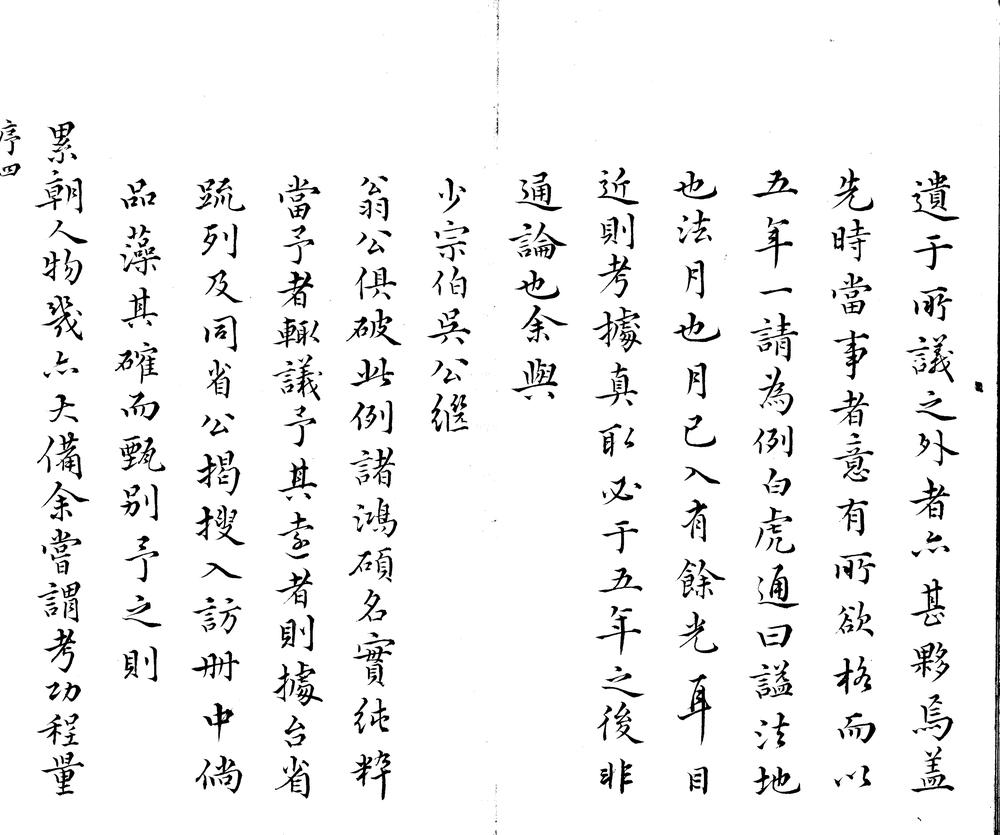 遺于所議之外者亦甚夥焉盖
先時當事者意有所欲格而以
五年一請為例白虎通曰謚法地
也法月也月已入有餘光耳目
近則考據真耴必于五年之後非
通論也余與
少宗伯吳公繼
翁公俱破此例諸鴻碩名實純粹
當予者輙議予其遠者則據台省
疏列及同省公揭搜入訪册中倘
品藻其確而甄别予之則
累朝人物幾亦大備余嘗謂考功程量
序四